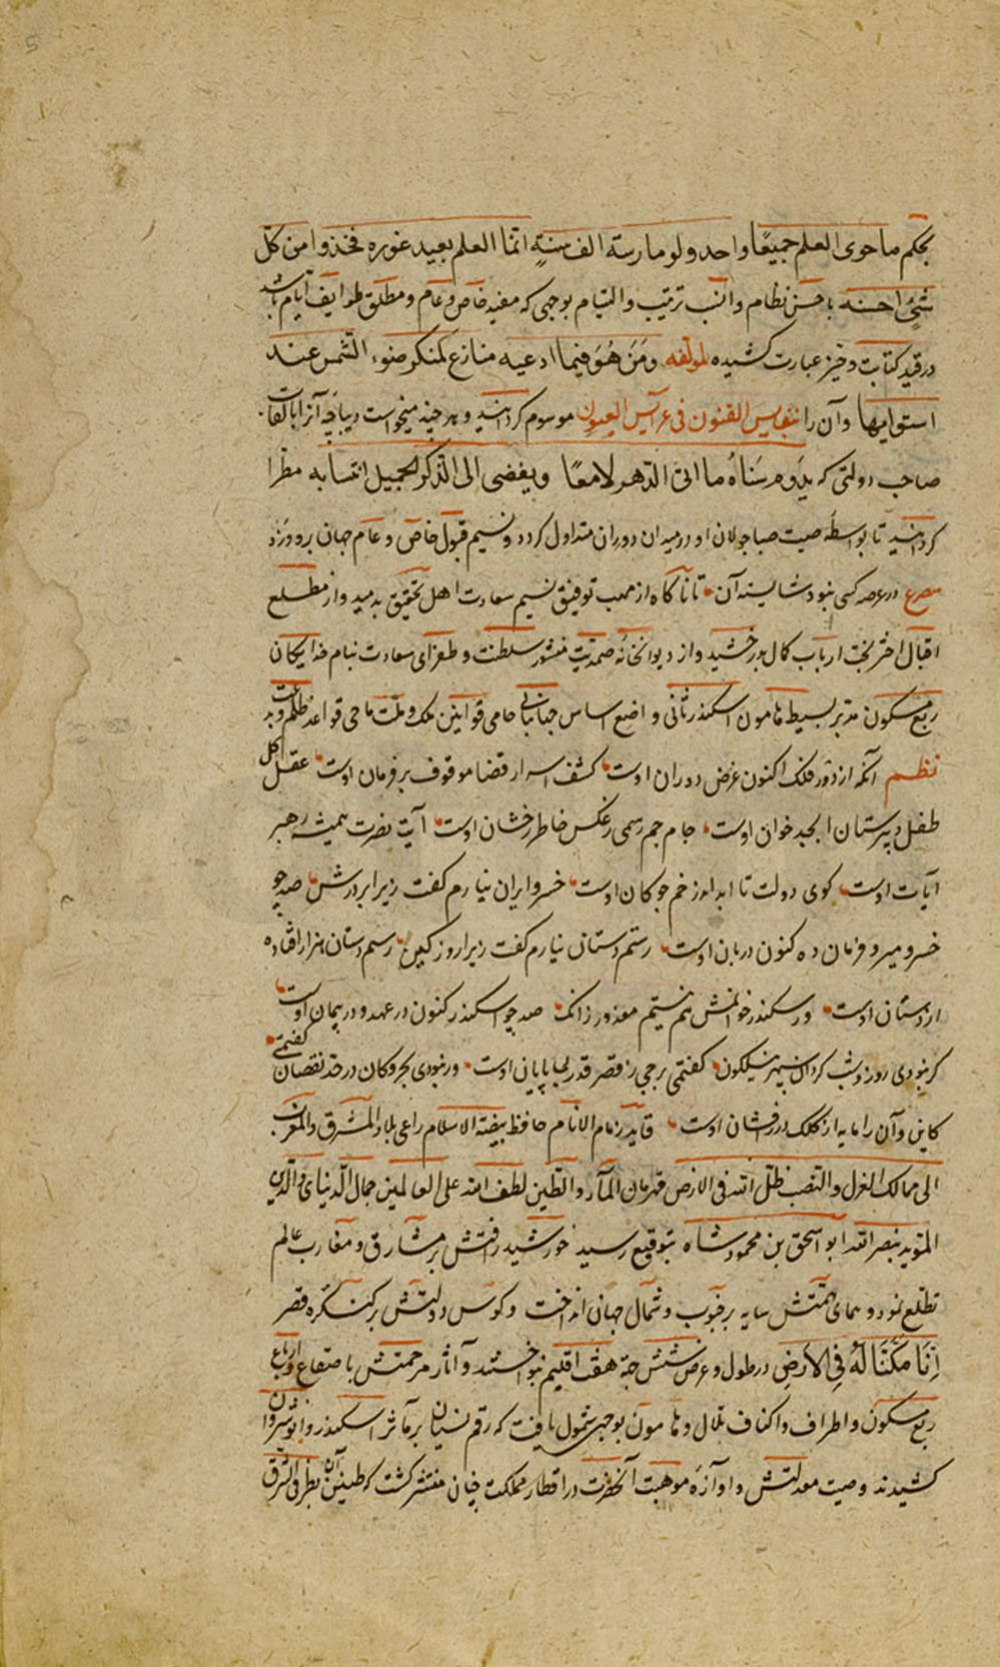 بحکم ما حوی العلم جمیعًا واحد ولو مارسه الف سنةٍ انما العلم بعید غوره فخذوا من کلّ
شئٍ احسنه باحسن نظام و انسب ترتیب و التیام بوجهی که مفید خاص و عام و مطلق طوایف ایام باشد
در قید کتابت و خیز عبارت کشیده لمولفه ومَن هُوَ فیما ادعیه منازع کمنکر ضوء الشمس عند
استوایها و آن را بنفایس الفنون فی عرایس العیون موسوم گردانید و هر چند میخواست دیباچه آنرا بالقاب
صاحب دولتی که یدوم سَناهُ ما اتی الدهر لامعًا ویفضی الی الذکر الجمیل انتسابه مطرا
گردانید تا بواسطه صیت صبا جولان او در میدان دوران متداول کرده و نسیم قبول خاص و عام جهان برو وزد
مصرع در عرصه کسی نبود شایسته آن تا ناگاه از مهب توفیق نسیم سعادت اهل تحقیق بدمید و از مطلع
اقبال اختر بخت ارباب کمال بدرخشید و از دیوانخانه صمدیت منشور سلطنت و طغرای سعادت بنام خدایگان
ربع مسکون مدبر بسیط هامون اسکندر ثانی واضع اساس جهانبانی حامی قوانین ملک و ملت ماحی قواعد ظلم و بدعت
نظم آنکه از دور فلک اکنون غرض دوران اوست کشف اسرار قضا موقوف بر فرمان اوست عقل کل
طفل دبیرستان ابجد خوان اوست جام جم رسمی ز عکس خاطر رخشان اوست آیت نصرت همیشه رهبر
آیات اوست گوی دولت تا ابد اندر خم چوگان اوست خسرو ایران نیارم گفت زیرا بر درش صد چو
خسرو میر و فرمان ده کنون دربان اوست رستم دستان نیارم گفت زیرا روز کین رستم دستان هزار افتاده
از دستان اوست ور سکندر خوانمش هم نیستم معذور زانک صد چو اسکندر کنون در عهد و در پیمان اوست
گر نبودی روز و شب گردان سپهر نیلگون گفتمی برجی ز قصر قدر بی پایان اوست ور نبودی بحر و کان در حد نقصان گفتمی
کاین و آن را مایه از کلک درر افشان اوست قاید زمام الانام حافظ بیضة الاسلام راعی بلاد المشرق و المغرب
الی ممالک العزل و النصب ظل الله فی الارض قهرمان المآء و الطین لطف الله علی العالمین جمال الدنیا و الدین
المؤید بنصر الله ابو اسحق بن محمود شاه بتوقیع رسید خورشید رافتش بر مشارق و مغارب عالم
تطلع نمود و همای همتش سایه بر جنوب و شمال جهان انداخت و کوس دولتش بر کنگره قصر
اِنَّا مَکَّنَّا لَهُ فِی الاَرضِ در طول و عرض شش جهة هفت اقلیم بنواختند و آثار مرحمتش باصقاع و ارباع
ربع مسکون و اطراف و اکناف تلال و هامون بوجهی شمول یافت که رقم نسیان بر مآثر اسکندر و انوشروان
کشیدند وصیت معدلتش و آوازه موهبت آنحضرت در اقطار مملکت چنان منتشر گشت که طنین آن بطرفی الشرق